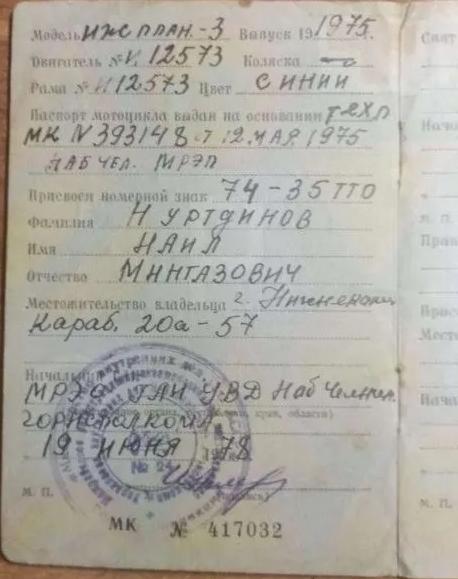 Модель ИЖС ПЛАН.-3 Выпуск 1975.
Двигатель № И. 12573 Коляска —
Рама № И12573 Цвет СИНИИ
Паспорт мотоцикла выдан на основании ТЕХП
МК № 393148 от 12 МАЯ. 1975
НАБ ЧЕЛ. МРЭП
Присвоен номерной знак 74-35 ТТО
Фамилия НУРТДИНОВ
Имя НАИЛ
Отчество МИНГАЗОВИЧ
Местожительство владельца г.
Караб. 20а-57
Начальник
МРЭО ГАИ УВД Наб Челнин.
ГОРИСПОЛКОМА
19 ИЮНЯ 1978
М. П.
МК № 417032